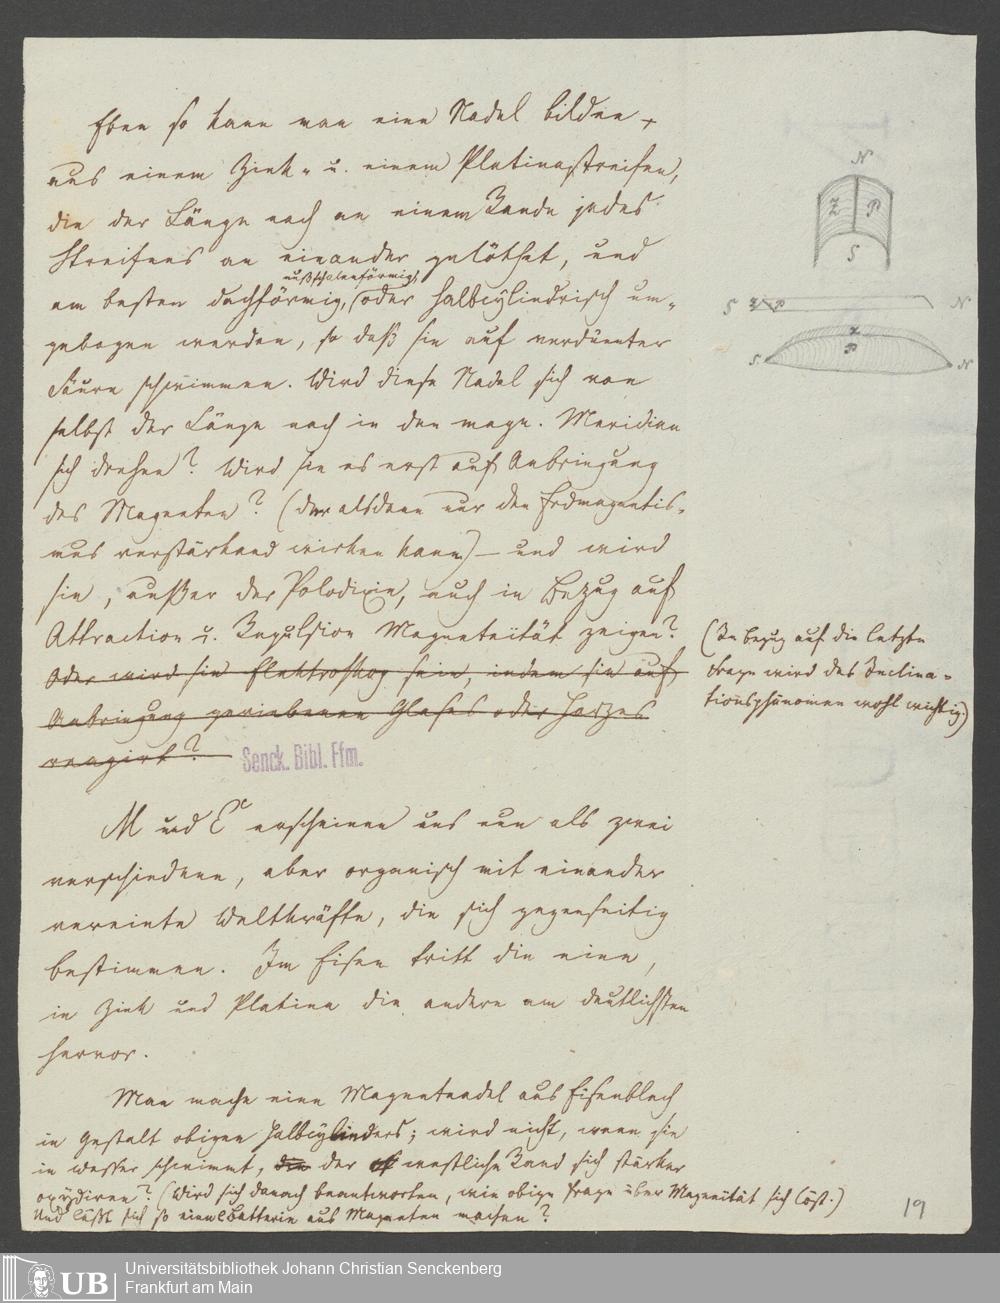 Eben so kann man eine Nadel bilden +
aus einem Zink- u. einem Platinastreifen,
die der Länge nach an einem Rande jedes
Streifens an einander gelöthet, und
nußschalenförmig,
am besten dachförmig, (oder halbcylindrisch um-
gebogen werden, so daß sie auf verdünnter
Säure schwimmen. Wird diese Nadel sich von
selbst der Länge nach in den magn. Meridian
sich drehen? Wird sie es erst auf Anbringung
des Magneten? (der alsdann nur den Erdmagnetis-
mus verstärkend wirken kann) – und wird
sie, außer der Polodixie, auch in Bezug auf
Attraction u. Repulsion Magneteität zeigen?
Oder wird sie Elektroskop sein, indem sie auf
Anbringung geriebenen Glases oder Harzes
reagirt?
(In Bezug auf die letzte
Frage wird das Inclina-
tionsphänomen wohl wichtig.)
N
Z P
S
S Z P N
Z
P
S N
Senck. Bibl. Ffm.
M und E erscheinen uns nun als zwei
verschiedene, aber organisch mit einander
vereinte Weltkräfte, die sich gegenseitig
bestimmen. Im Eisen tritt die eine,
in Zink und Platina die andere am deutlichsten
hervor.
Man mache eine Magnetnadel aus Eisenblech,
in Gestalt obigen Halbcylinders; wird nicht, wenn sie
in Wasser schwimmt, die der westliche Rand sich stärker
oxydiren? (Wird sich danach beantworten, wie obige Frage über Magneität sich löst.)
Und läßt sich so eine Batterie aus Magneten machen?
19
UB
Universitätsbibliothek Johann Christian Senckenberg
Frankfurt am Main